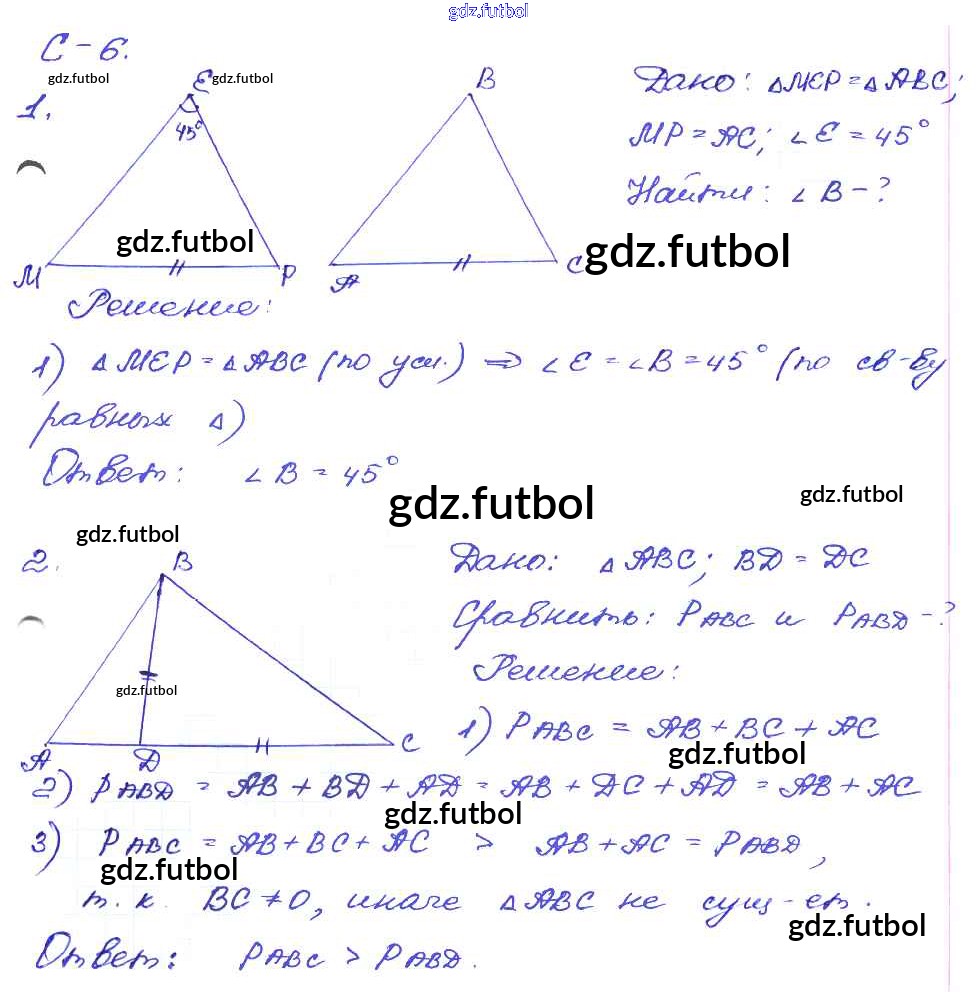 gdz.futbol
С-6.
gdz.futbol gdz.futbol
1.
E
45°
M P
B
A C
Дано: △MEP = △ABC;
MP = AC; ∠E = 45°
Найти: ∠B - ?
gdz.futbol gdz.futbol
Решение:
1) △MEP = △ABC (по усл.) ⇒ ∠E = ∠B = 45° (по св-ву
равных △)
Ответ: ∠B = 45°
gdz.futbol gdz.futbol
gdz.futbol
2.
B
A D C
gdz.futbol
Дано: △ABC; BD = DC
Сравнить: PABC и PABD - ?
Решение:
1) PABC = AB + BC + AC
gdz.futbol
2) PABD = AB + BD + AD = AB + DC + AD = AB + AC
gdz.futbol
3) PABC = AB + BC + AC > AB + AC = PABD,
gdz.futbol
т.к. BC ≠ 0, иначе △ABC не сущ-ет.
gdz.futbol
Ответ: PABC > PABD.